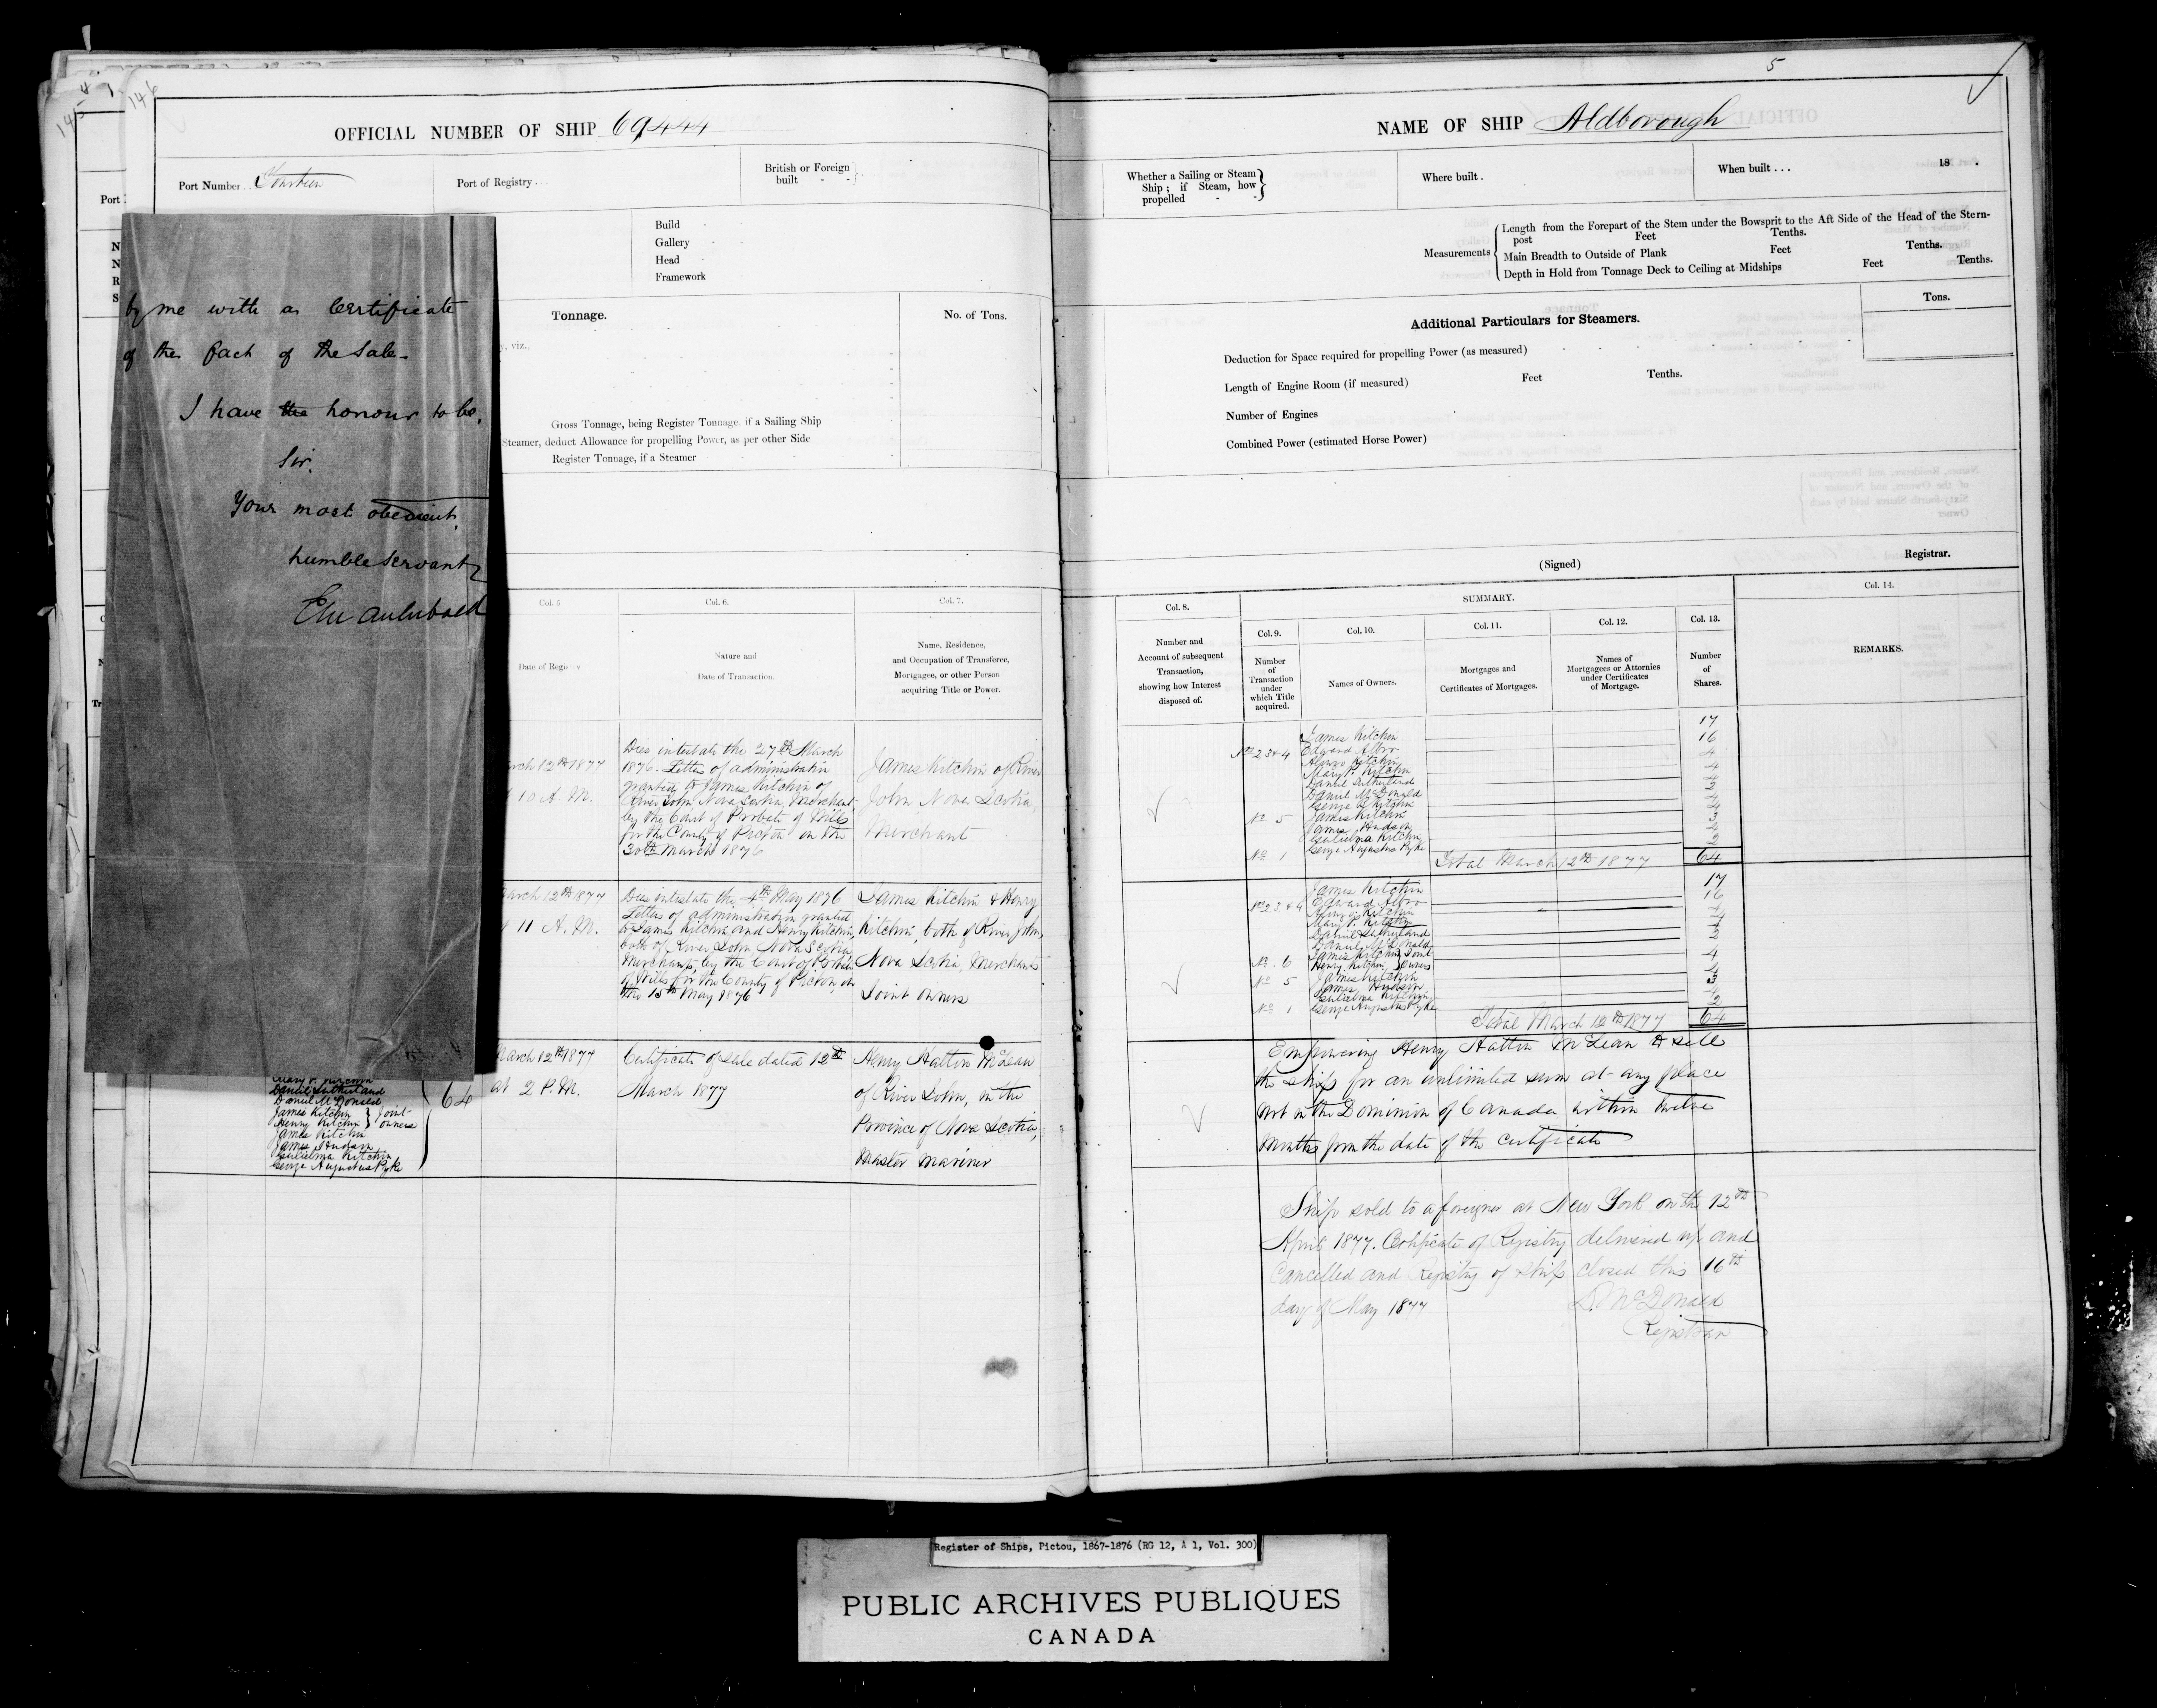 146
OFFICIAL NUMBER OF SHIP 69,444
Port Number . . Fourteen
Port of Registry . . .
British or Foreign built - -
Build -
Gallery -
Head -
Framework
Tonnage.
No. of Tons.
y, viz.,
Gross Tonnage, being Register Tonnage, if a Sailing Ship
Steamer, deduct Allowance for propelling Power, as per other Side
Register Tonnage, if a Steamer
by me with a Certificate
of the fact of the Sale-
I have the honour to be,
Sir,
Your most obedient,
humble servant
Col. 5
Col. 6.
Col. 7.
Nature and
Date of Transaction.
Name, Residence,
and Occupation of Transferee,
Mortgagee, or other Person
acquiring Title or Power.
March 12th 1877
10 A. M.
Dies intestate the 27th March
1876. Letters of administration
granted to James Kitchin of
River John, Nova Scotia, Merchant
by the Court of Probate of Wills
for the County of Pictou on the
30th March 1876
James Kitchin of River
John Nova Scotia,
Merchant
March 12th 1877
11 A. M.
Dies intestate the 4th May 1876
Letters of administration granted
to James Kitchin and Henry Kitchin,
both of River John Nova Scotia
Merchants, by the Court of Probate
of Wills for the County of Pictou, on
the 15th May 1876
James Kitchin & Henry
Kitchin, both of River John,
Nova Scotia, Merchants
Joint owners
Mary P. Kitchin
Daniel Sutherland
Daniel McDonald
James Kitchin } Joint
Henry Kitchin } owners
James Kitchin
James Hudson
Gulielma Kitchin
George Augustus Pyke
64
March 12th 1877
at 2 P. M.
Certificate of sale dated 12th
March 1877
Henry Hatton McLean
of River John, in the
Province of Nova Scotia,
Master Mariner
5
NAME OF SHIP Aldborough
Whether a Sailing or Steam Ship; if Steam, how propelled - -
Where built .
When built . . . 18 .
Measurements
Length from the Forepart of the Stem under the Bowsprit to the Aft Side of the Head of the Stern-
post Feet Tenths.
Main Breadth to Outside of Plank Feet Tenths.
Depth in Hold from Tonnage Deck to Ceiling at Midships Feet Tenths.
Additional Particulars for Steamers.
Tons.
Deduction for Space required for propelling Power (as measured)
Length of Engine Room (if measured) Feet Tenths.
Number of Engines
Combined Power (estimated Horse Power)
(Signed) Registrar.
Col. 8.
SUMMARY.
Col. 14.
Col. 9.
Col. 10.
Col. 11.
Col. 12.
Col. 13.
Number and
Account of subsequent
Transaction,
showing how Interest
disposed of.
Number
of
Transaction
under
which Title
acquired.
Names of Owners.
Mortgages and
Certificates of Mortgages.
Names of
Mortgagees or Attornies
under Certificates
of Mortgage.
Number
of
Shares.
REMARKS.
James Kitchin 17
Nos 2, 3 & 4 Edward Albro 16
Alonzo Kitchin 4
Mary P. Kitchin
Daniel Sutherland
Daniel McDonald
George R Kitchin
No 5 James Kitchin
James Hudson
Gulielma Kitchin
No 1 George Augustus Pyke
Total March 12th 1877 64
James Kitchin 17
Nos 2, 3, & 4 Edward Albro 16
Alonzo Kitchin
Mary P. Kitchin
Daniel Sutherland
Daniel McDonald
No. 6 James Kitchin } Joint
Henry Kitchin } Owners 4
No 5 James Kitchin
James Hudson
Gulielma Kitchin
No 1 George Augustus Pyke
Total March 12th 1877 64
Empowering Henry Hatton McLean to sell
the ship for an unlimited sum at any place
not in the Dominion of Canada within twelve
months from the date of the certificate
Ship sold to a foreigner at New York on the 12th
April 1877. Certificate of Registry delivered up and
Cancelled and Registry of ship closed this 16th
day of May 1877
D. McDonald
Registrar
Register of Ships, Pictou, 1867-1876 (RG 12, A 1, Vol. 300)
PUBLIC ARCHIVES PUBLIQUES
CANADA